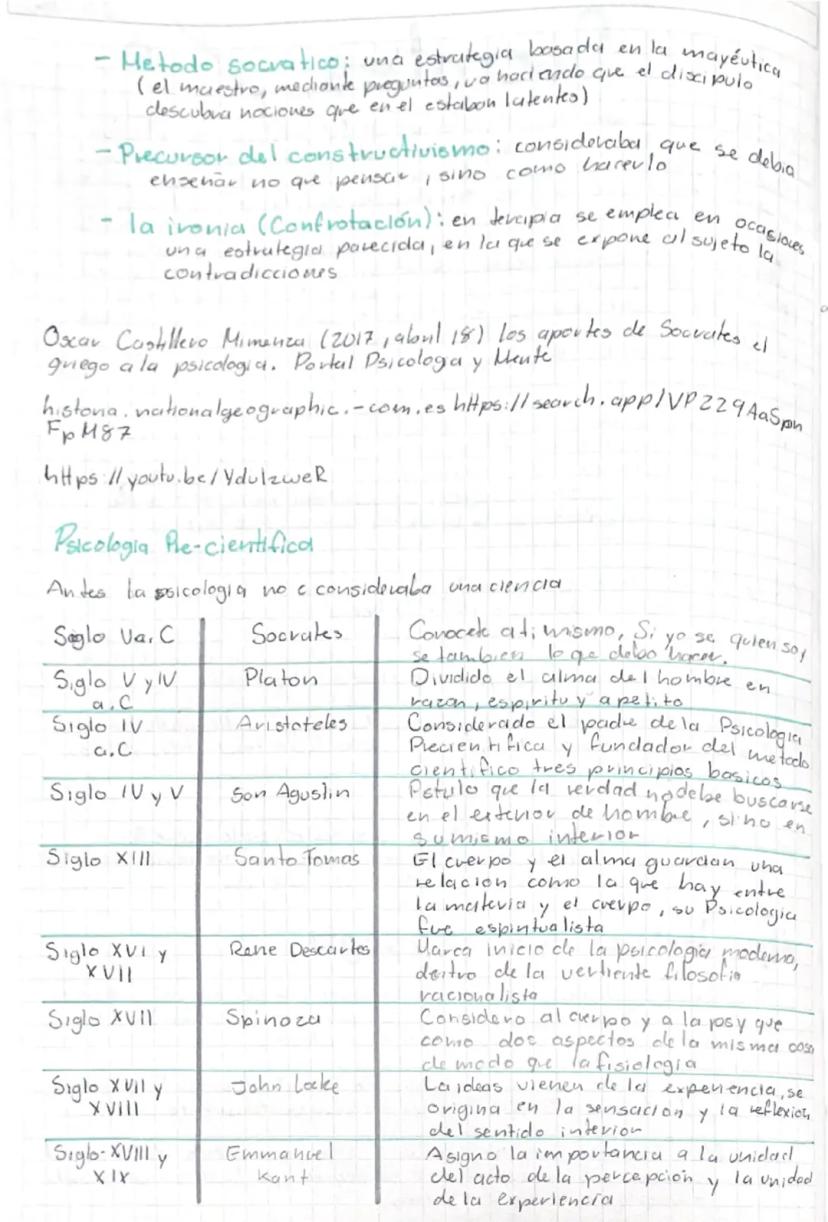 - Metodo socratico: una estrategia basada en la mayéutica
(el maestro, mediante preguntas, va haciendo que el discipulo
descubra nociones que en el estaban latentes)
- Precursor del constructivismo: consideraba que se debia
enseñar no que pensar, sino como hacerlo
- la ironia (Confrotación): en terapia se emplea en ocasiones
una estrategia parecida, en la que se expone al sujeto la
contradicciones
Oscar Castillero Mimenza (2017, abril 18) los aportes de Socrates el
griego a la psicologia. Portal Psicologa y Mente
historia.nationalgeographic.-com.es https://search.app/VPZ29AaSpn
FpM87
https://youtu.be/YdulzweR
Psicologia Pre-cientifica
Antes la psicologia no c consideraba una ciencia
Soglo Va.C
Socrates
Conocete a ti mismo, Si yo se quien soy
se tambien lo que debo hacer.
Siglo V y IV
a.C
Platon
Dividido el alma del hombre en
razon, espiritu y apetito
Siglo IV
a.C
Aristoteles
Considerado el padre de la Psicologia
Precientifica y fundador del metodo
cientifico tres principios basicos
Siglo IV y V
San Agustin
Pstulo que la verdad no debe buscarse
en el exterior de hombre, sino en
su mismo interior
Siglo XIII
Santo Tomas
El cuerpo y el alma guardan una
relacion como la que hay entre
la materia y el cuerpo, su Psicologia
fue espiritualista
Siglo XVI y
XVII
Rene Descartes
Marca inicio de la psicologia moderna,
deitro de la vertiente filosofia
racionalista
Siglo XVII
Spinoza
Considero al cuerpo y a la psy que
como dos aspectos de la misma cosa
de modo que la fisiologia
Siglo XVII y
XVIII
John Locke
La ideas vienen de la experiencia, se
origina en la sensacion y la reflexion
del sentido interior
Siglo-XVIII y
XIX
Emmanuel
Kant
Asigno la importancia a la unidad
del acto de la percepción y la unidad
de la experiencia